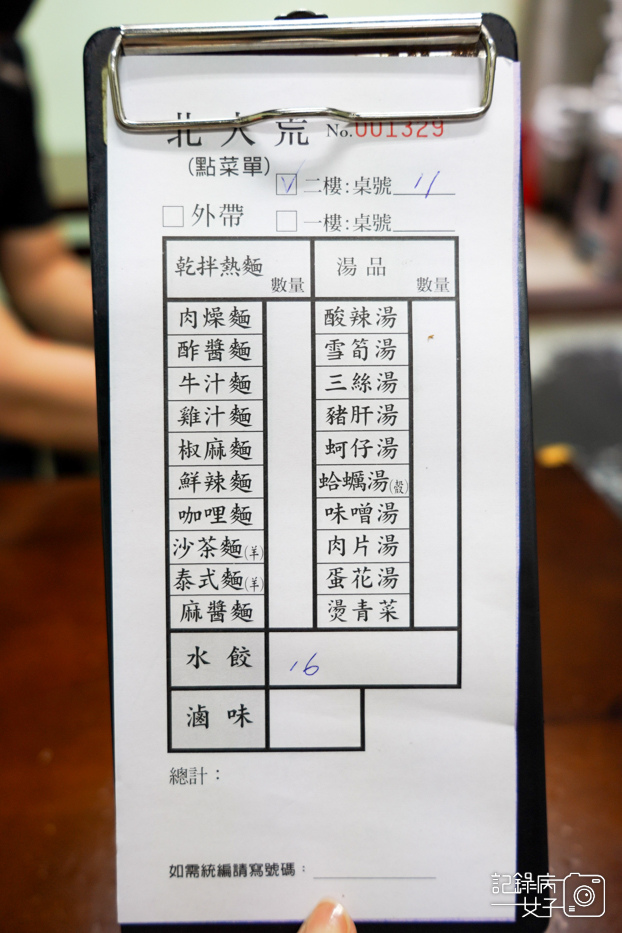 北大荒 No.001329
(點菜單)
☑ 二樓:桌號 11
☐ 外帶 ☐ 一樓:桌號
乾拌熱麵 數量 湯品 數量
肉燥麵 酸辣湯
酢醬麵 雪筍湯
牛汁麵 三絲湯
雞汁麵 豬肝湯
椒麻麵 蚵仔湯
鮮辣麵 蛤蠣湯(殼)
咖哩麵 味噌湯
沙茶麵(羊) 肉片湯
泰式麵(羊) 蛋花湯
麻醬麵 燙青菜
水餃 16
滷味
總計:
如需統編請寫號碼:
記錄病
女子